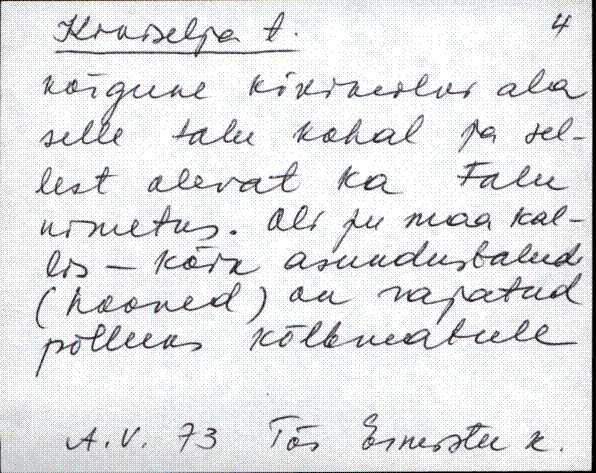 Kiviselja t. 4
kõigune kivikülvi ala
selle talu kohal ja sel-
lest olevat ka talu
nimetus. Oli ju maa kal-
lis – kõik asundustalud
(hooned) on rajatud
põlluks kõlbmatule
A.V. 73 Tõs Ermistu k.